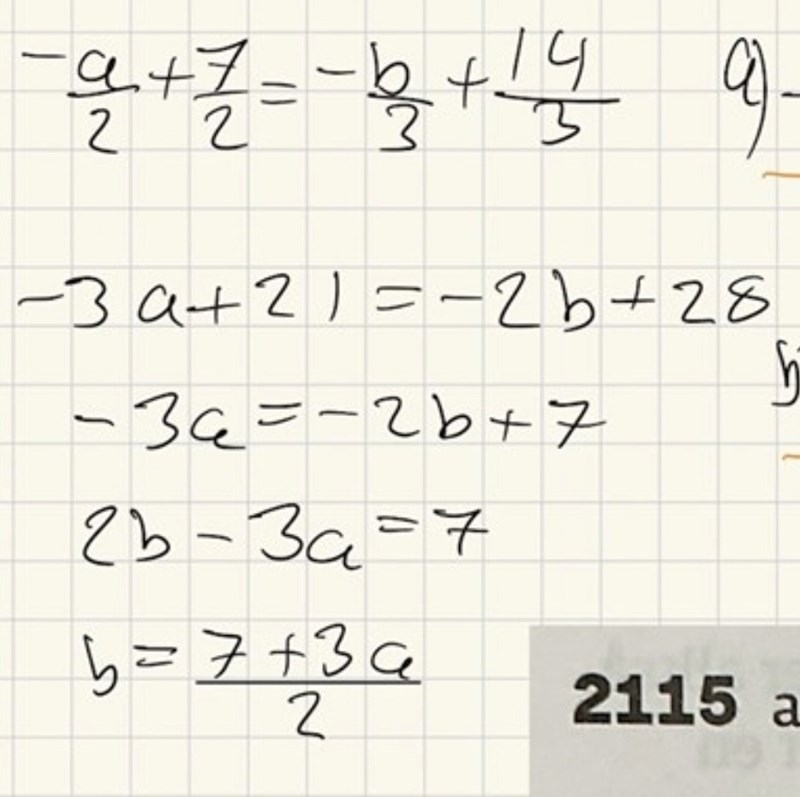 -a/2 + 7/2 = -b/3 + 14/3
a) -
-3a + 21 = -2b + 28
b
-3a = -2b + 7
2b - 3a = 7
b = (7 + 3a)/2
2115 a